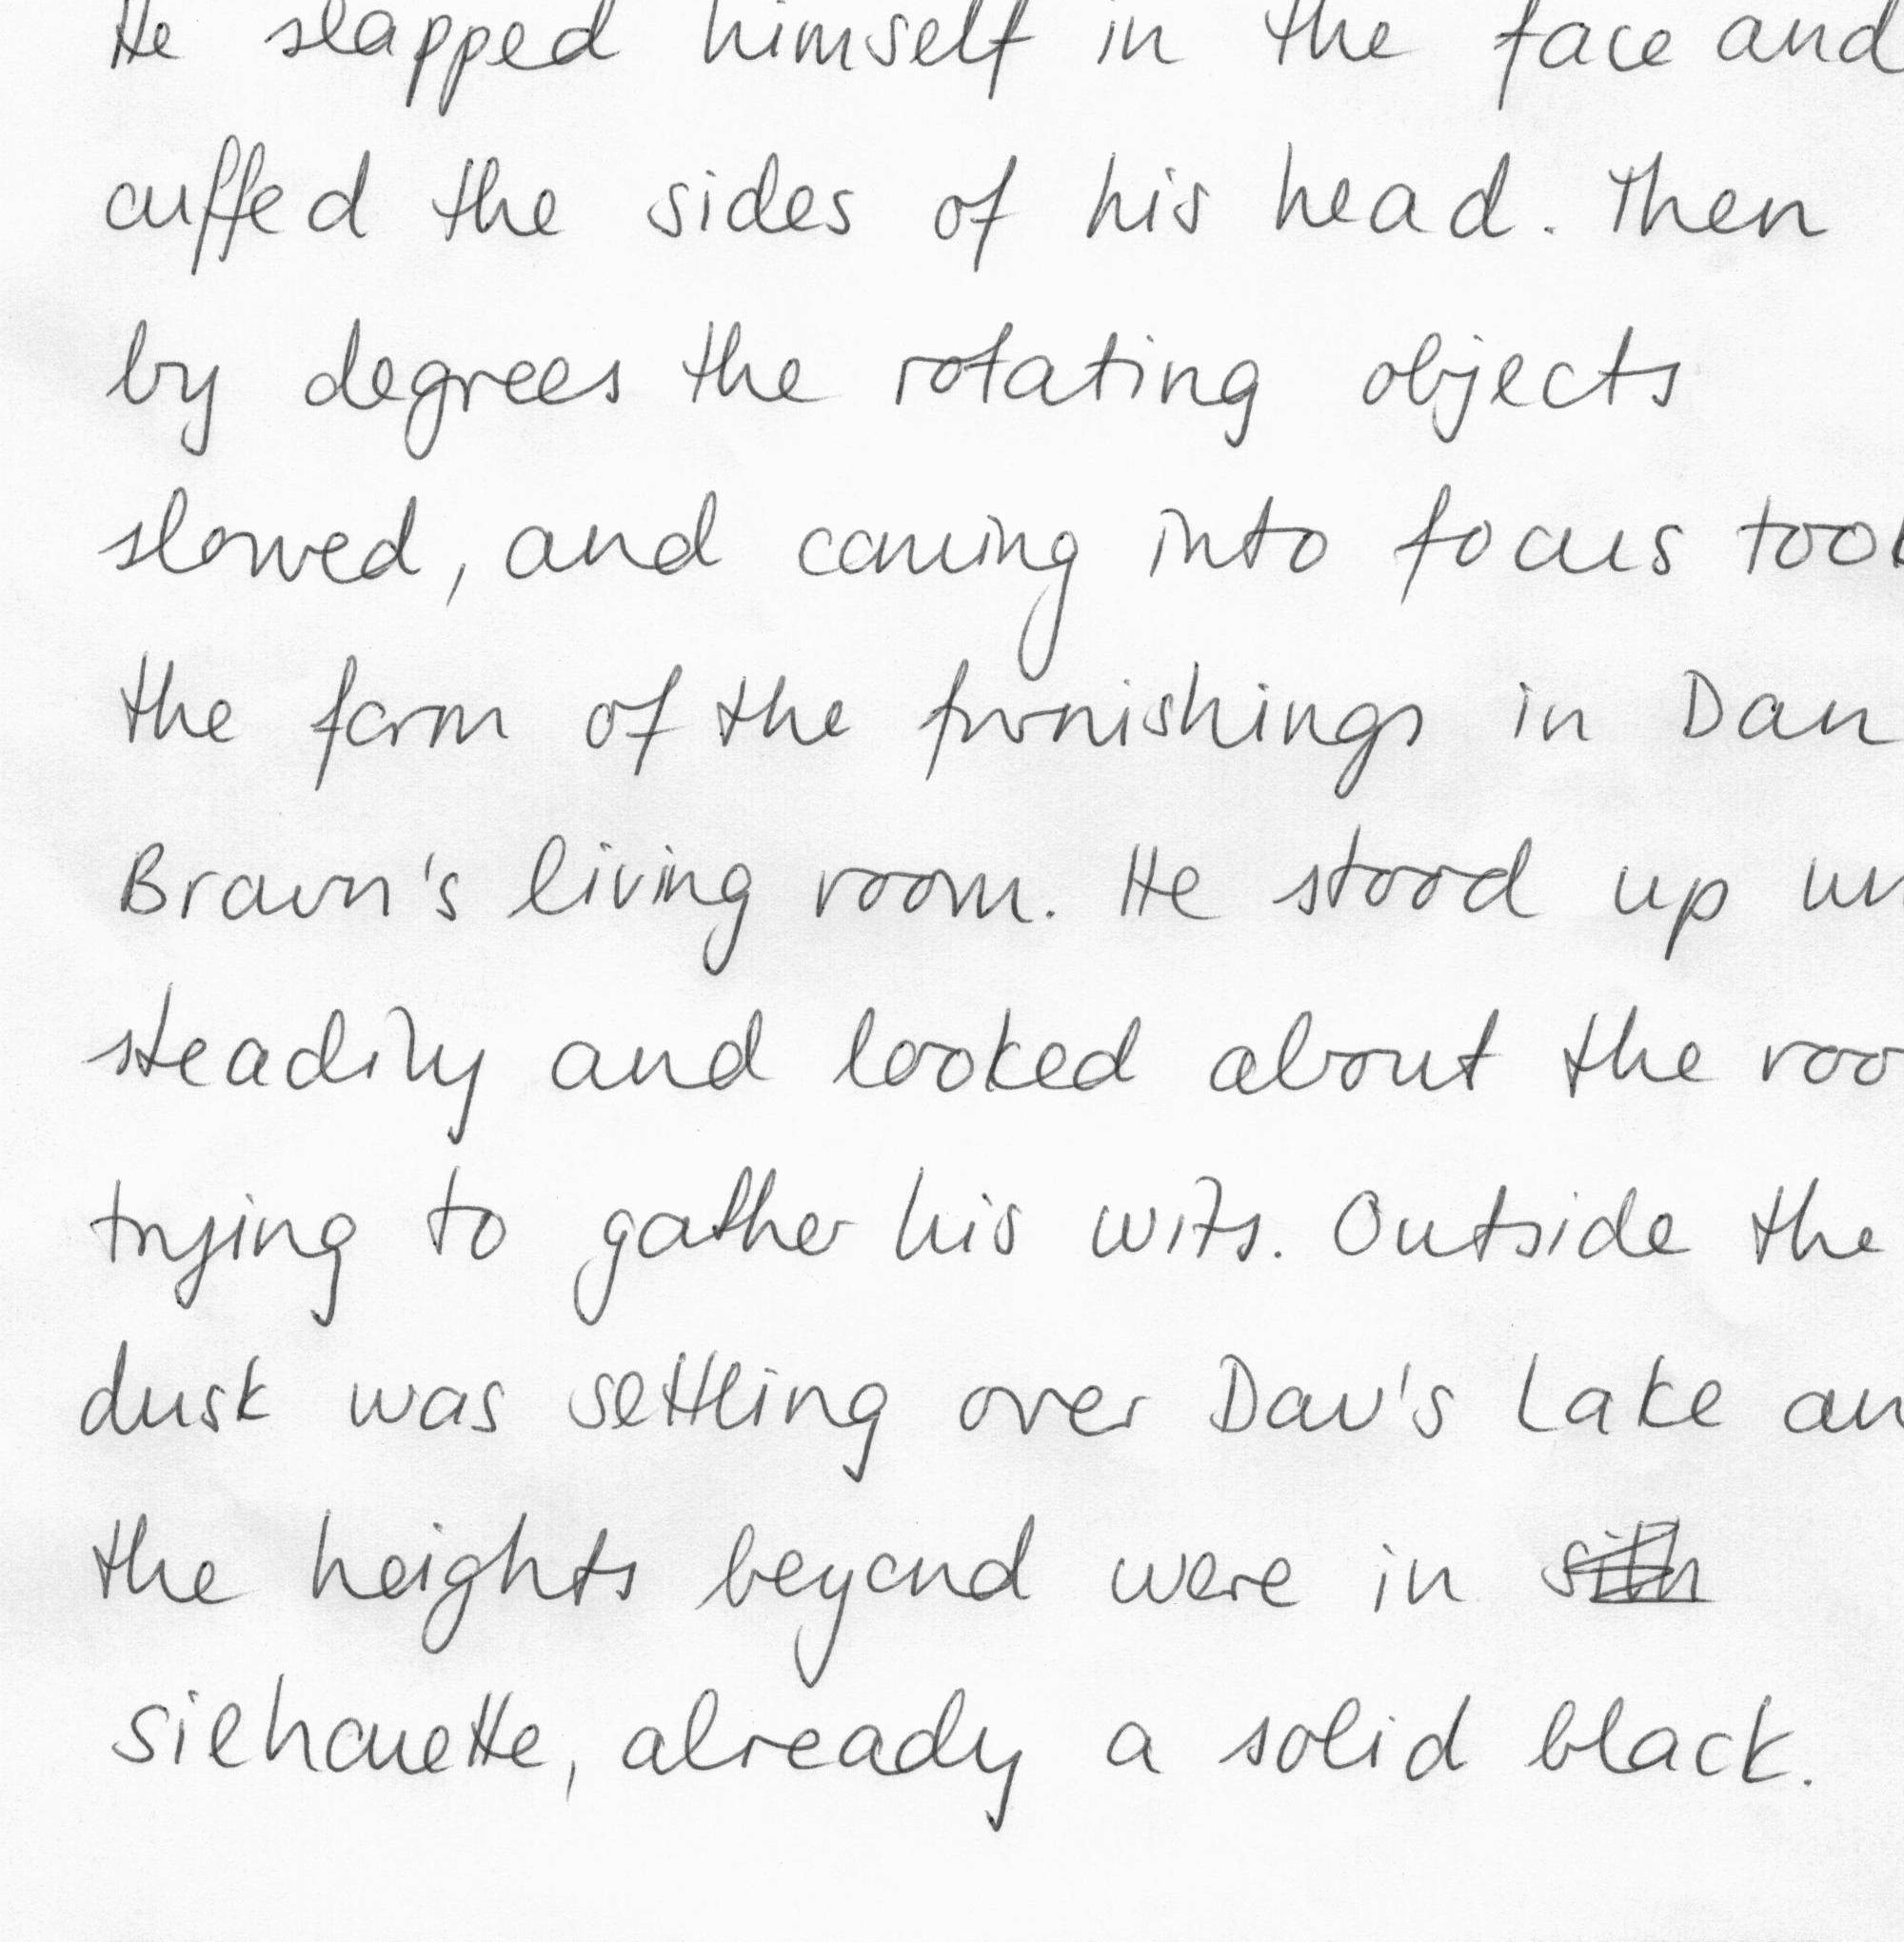 He slapped himself in the face and
cuffed the sides of his head. Then
by degrees the rotating objects
slowed, and coming into focus took
the form of the furnishings in Dan
Brown's living room. He stood up un
steadily and looked about the roo
trying to gather his wits. Outside the
dusk was settling over Dav's Lake an
the heights beyond were in
silhouette, already a solid black.